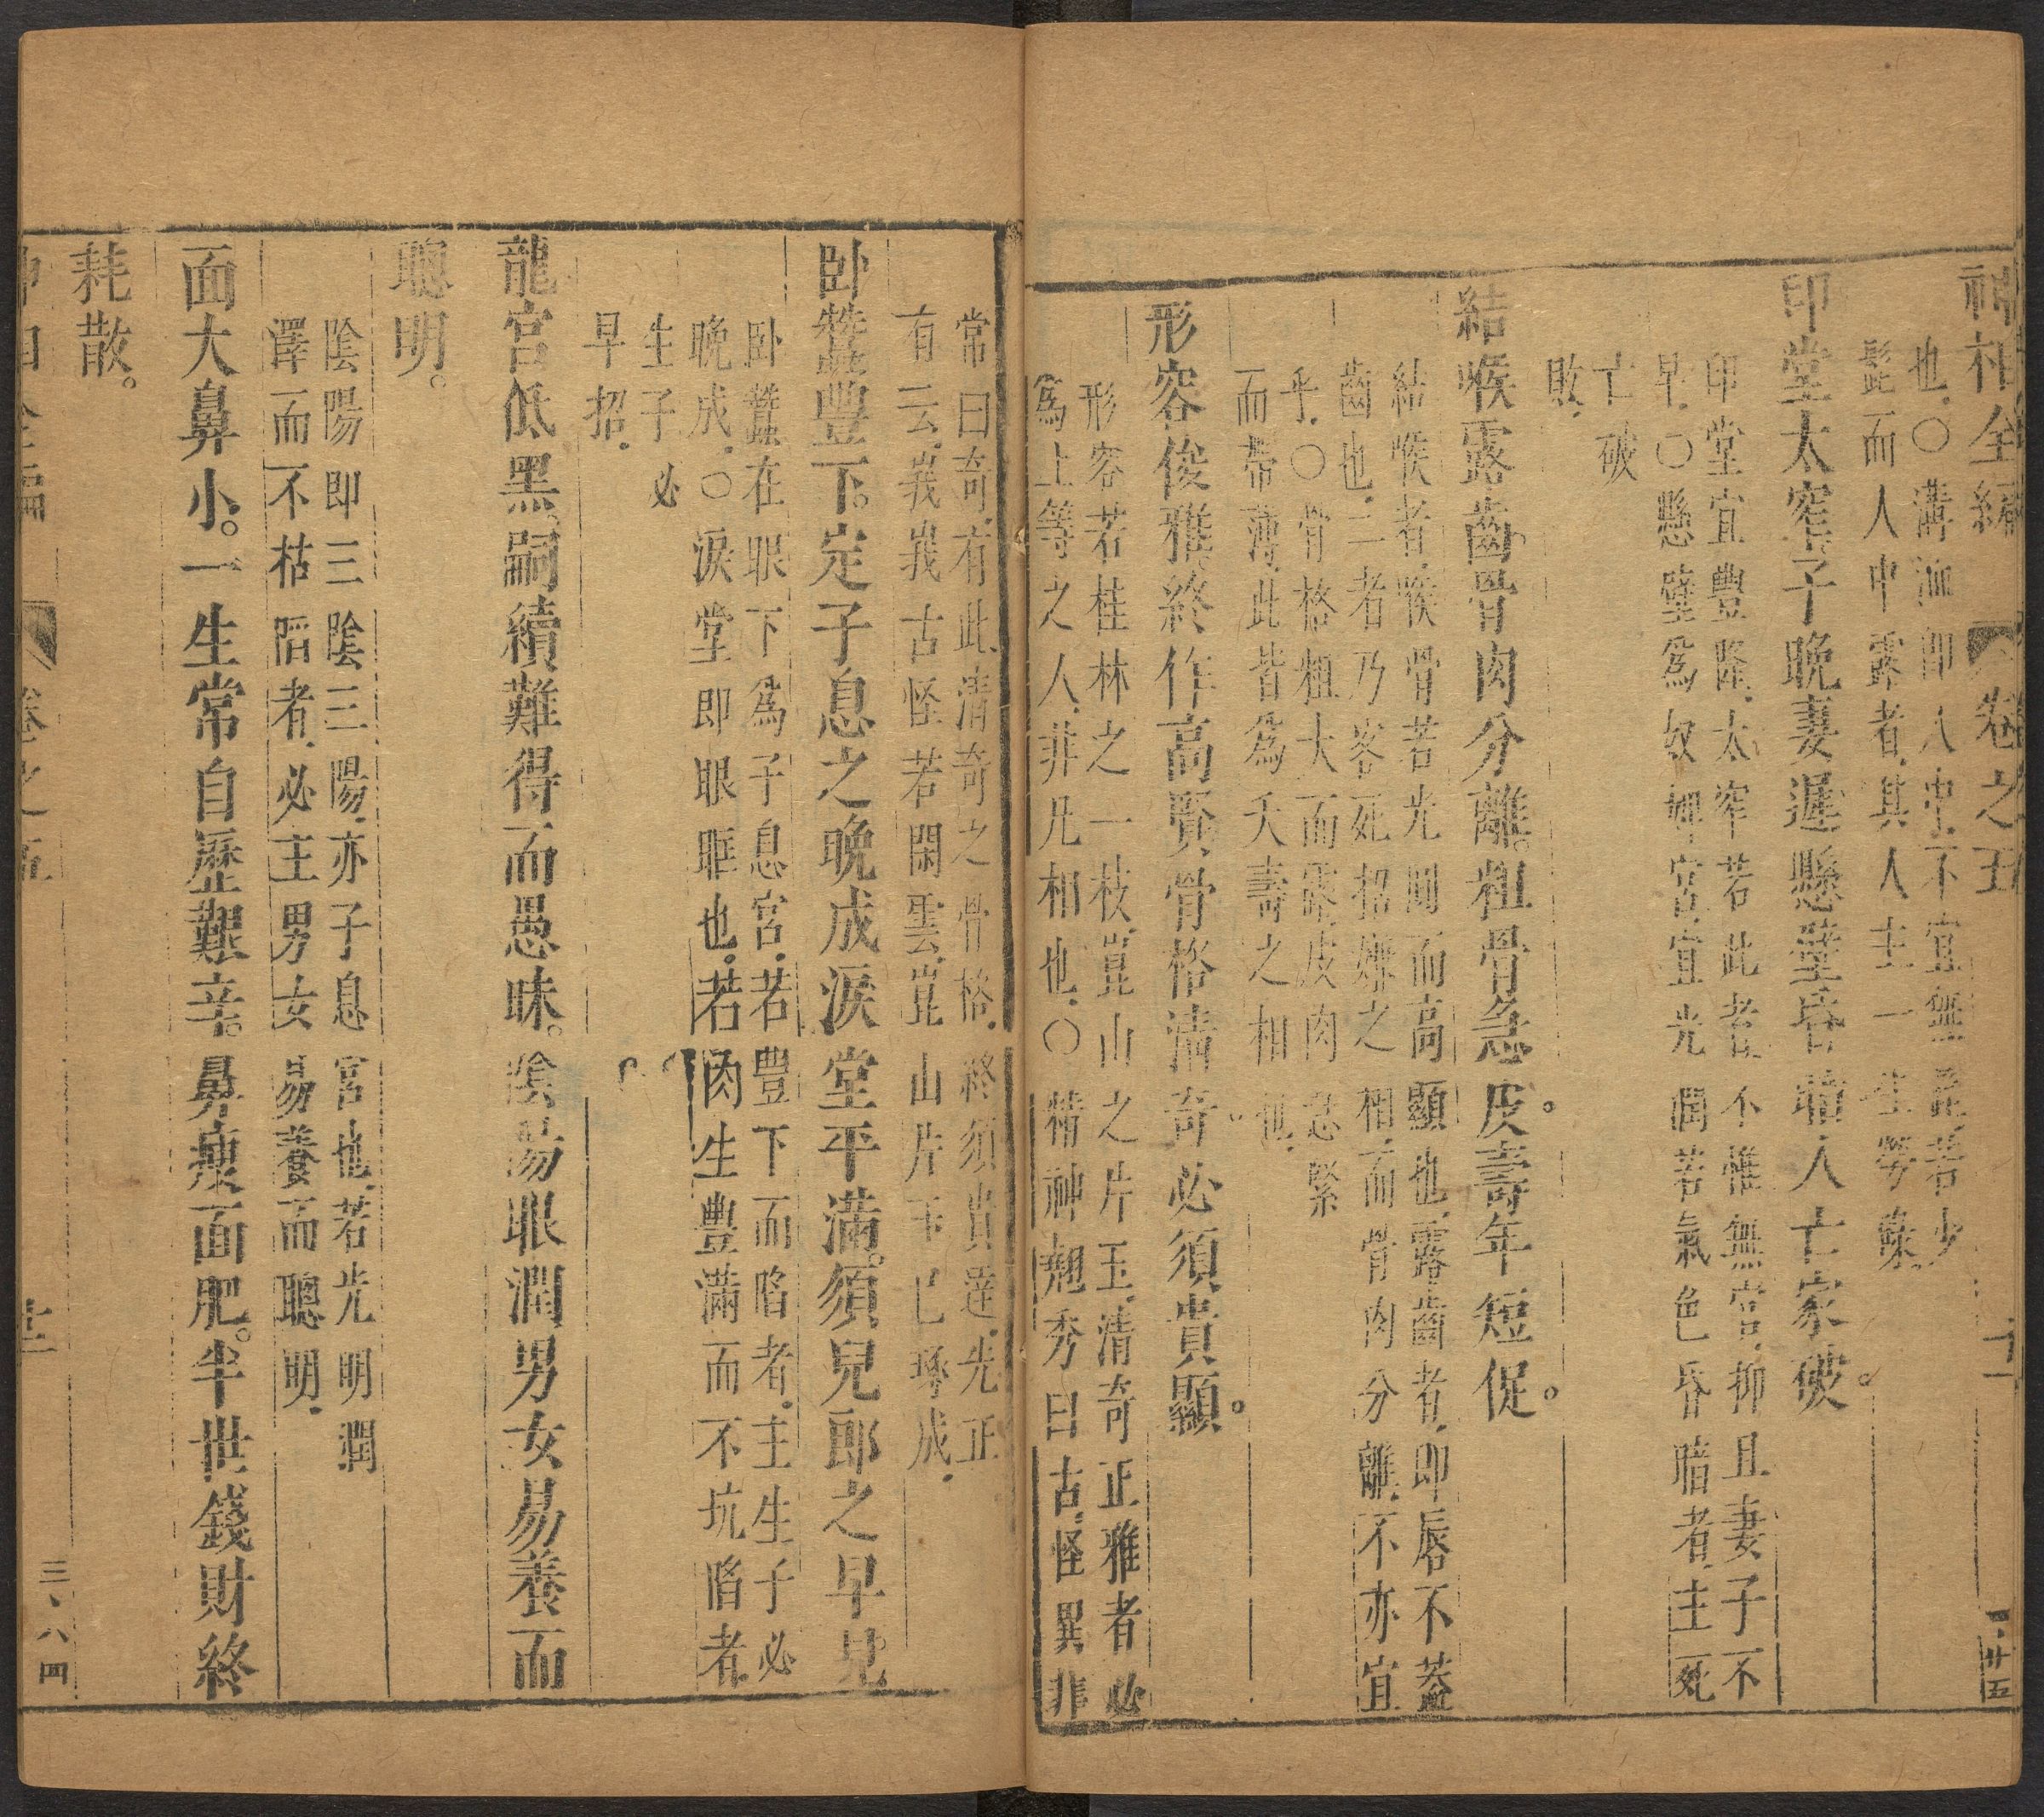 神相全編 卷之五 十一 二、廿五
也、○溝洫即人中、不宜無髭、若少
髭而人中露者、其人主一生勞蹂、
印堂太窄子晚妻遲懸壁昏暗人亡家破。
印堂宜豐隆、太窄若此者、不惟無官、抑且妻子不
早、○懸壁爲奴婢宮、宜光潤、若氣色昏暗者、主死
亡破
敗、
結喉露齒骨肉分離。粗骨急皮壽年短促。
結喉者、喉骨若光圓而高顯也、露齒者、即唇不蓋
齒也、二者乃客死招嫌之相、而骨肉分離、不亦宜
乎、○骨格粗大而露、皮肉急緊
而帶薄、此皆爲夭壽之相也、
形容俊雅終作高賢骨格清奇必須貴顯。
形容若桂林之一枝、崑山之片玉、清奇正雅者、必
爲上等之人、非凡相也、○精神翹秀曰古、怪異非
常曰奇、有此清奇之骨格、終須貴達、光正
有云、峩峩古怪若閑雲、崑山片玉已琢成、
卧蠶豐下。定子息之晚成淚堂平滿。須兒郎之早見
卧蠶在眼下爲子息宮、若豐下而陷者、主生子必
晚成、○淚堂即眼眶也、若肉生豐滿而不坑陷者、
生子必
早招、
龍宮低黑。嗣續難得而愚昧。陰陽眼潤男女易養而
聰明。
陰陽即三陰三陽、亦子息宮也、若光明潤
澤而不枯陷者、必主男女易養而聰明、
面大鼻小。一生常自歷艱辛。鼻瘦面肥。半世錢財終
耗散。
神相全編 卷之五 十二 三、八四